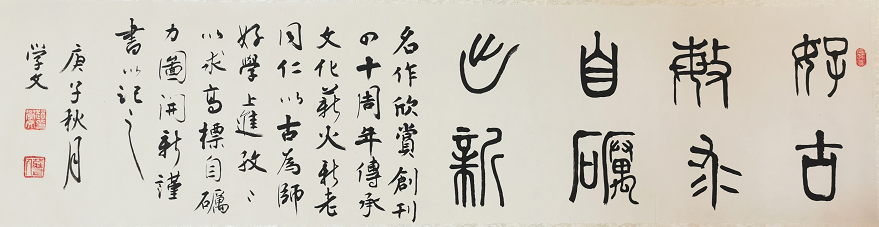 好古
敏求
自礪
出新
名作欣賞創刊
四十周年傳承
文化薪火新老
同仁以古為師
好學上進孜〻
以求高標自礪
力圖開新謹
書以記之
庚子秋月
学文